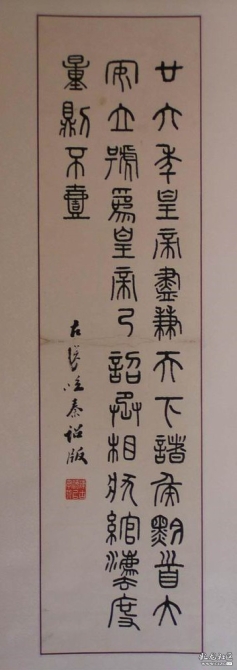 廿六年皇帝盡兼天下諸侯黔首大
安立號為皇帝乃詔丞相狀綰灋度
量則不壹
秦詔版